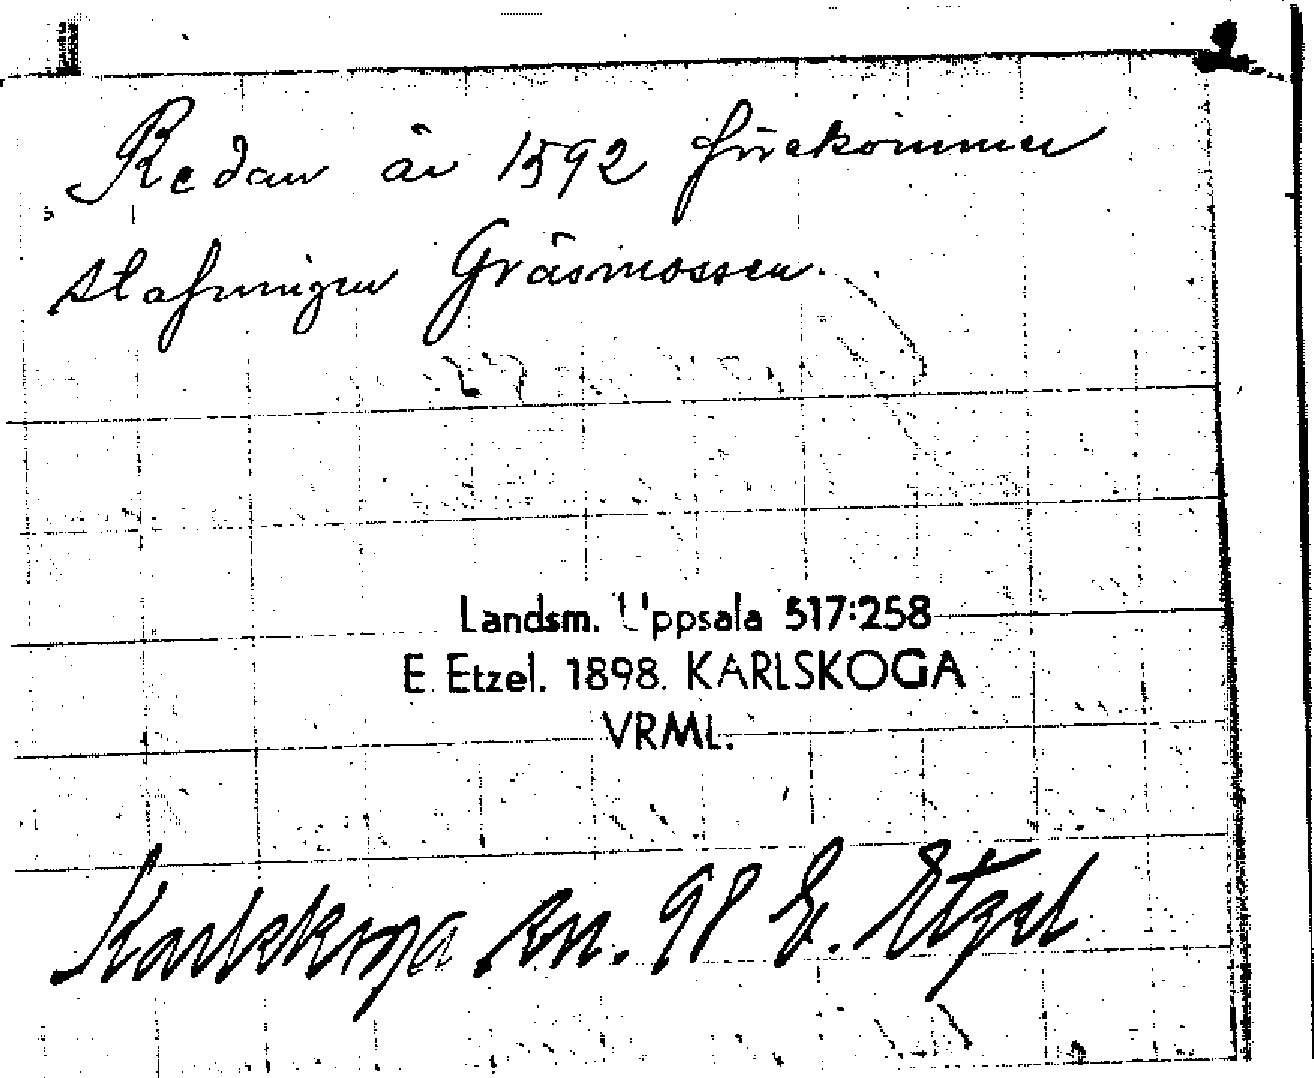 Redan år 1592 förekommer
stafningen Gräsmossen.
Landsm. Uppsala 517:258
E. Etzel. 1898. KARLSKOGA
VRML.
Karlskoga sn. 98 E. Etzel